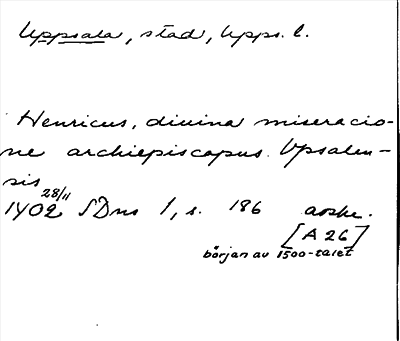 Uppsala, stad, Upps. l.
Henricus, divina miseracio-
ne archiepiscopus Upsalen-
sis
1402 28/11 SDns 1, s. 186 avskr.
[A 26]
början av 1500-talet